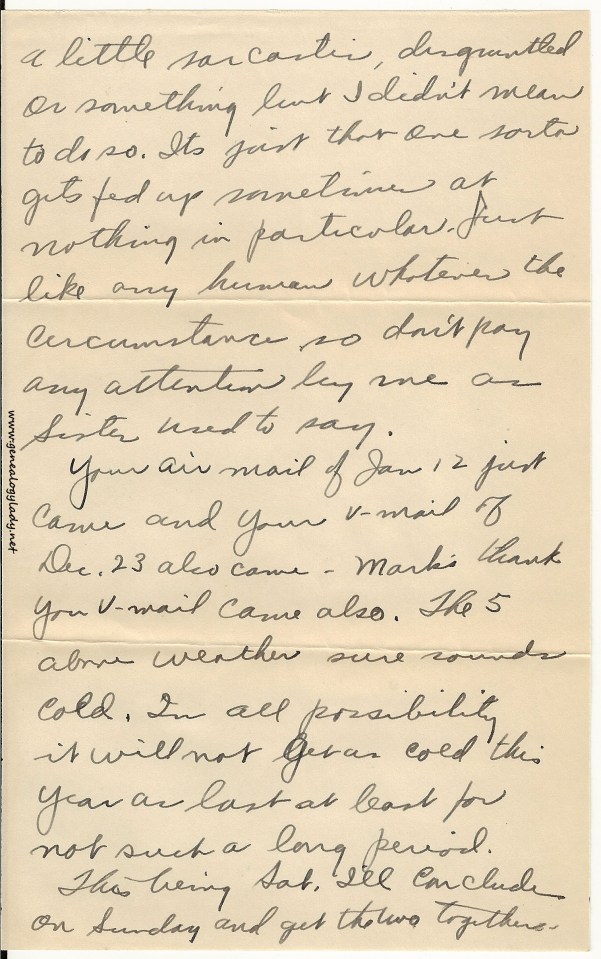 a little sarcastic, disgruntled
or something but I didn't mean
to do so. Its just that one sorta
gets fed up sometimes at
nothing in particular. Just
like any human whatever the
circumstance so don't pay
any attention by me as
Sister used to say.
Your air mail of Jan 12 just
came and your v-mail of
Dec. 23 also came - Mark's thank
you v-mail came also. The 5
above weather sure sounds
cold. In all possibility
it will not get as cold this
year as last at least for
not such a long period.
This being Sat. I'll conclude
on Sunday and get the two together.
www.genealogylady.net